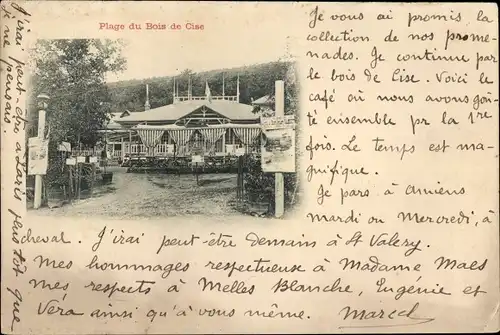 Plage du Bois de Cise
Je vous ai promis la
collection de nos prome-
nades. Je continue par
le bois de Cise. Voici le
café où nous avons goû-
té ensemble pr la 1re
fois. Le temps est ma-
gnifique.
Je pars à Amiens
mardi ou Mercredi, à
cheval. J'irai peut-être Demain à St Valery.
Mes hommages respectueux à Madame Maes
mes respects à Melles Blanche, Eugénie et
Véra ainsi qu'à vous même. Marcel
J'irai peut-être à Paris plus tôt que
je ne pensais.